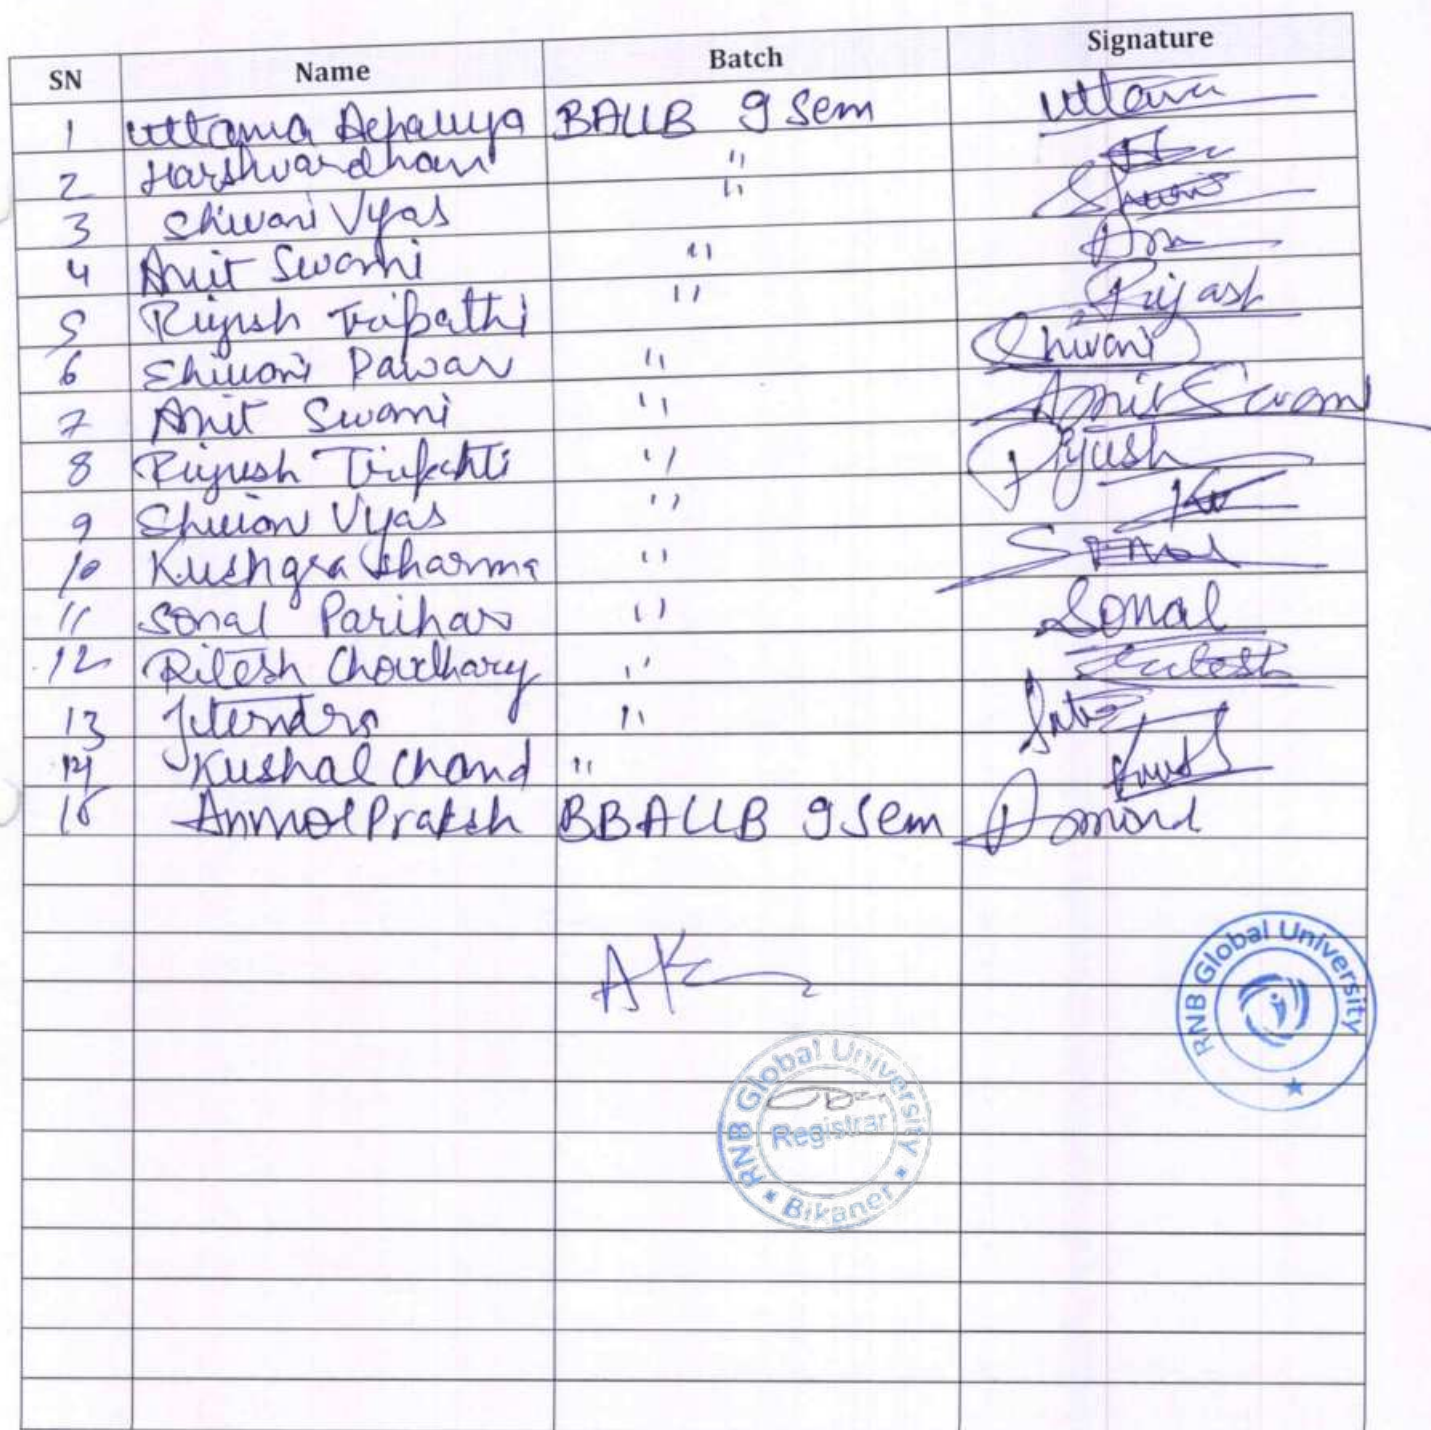 SN Name Batch Signature
1 Uttama Acharya BALLB 9 Sem Uttama
2 Harshvardhan "
3 Shivani Vyas " Shivani
4 Amit Swami "
5 Piyush Tripathi " Piyash
6 Shivani Pawar " Shivani
7 Amit Swami " Amit Swami
8 Piyush Tripahti " Piyush
9 Shivani Vyas "
10 Kushgra Sharma " Sonal
11 Sonal Parihar " Sonal
12 Ritesh Choudhary " Ritesh
13 Jitendra "
14 Kushal Chand "
15 Anmol Praksh BBALLB 9 Sem
RNB Global University
RNB Global University
Registrar
Bikaner